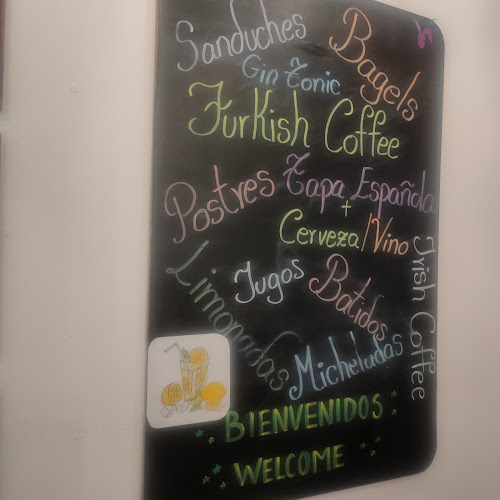 Sanduches
Bagels
Gin Tonic
Turkish Coffee
Postres
Tapa Española
+
Cerveza/Vino
Irish Coffee
Jugos
Batidos
Limonadas
Micheladas
BIENVENIDOS
WELCOME